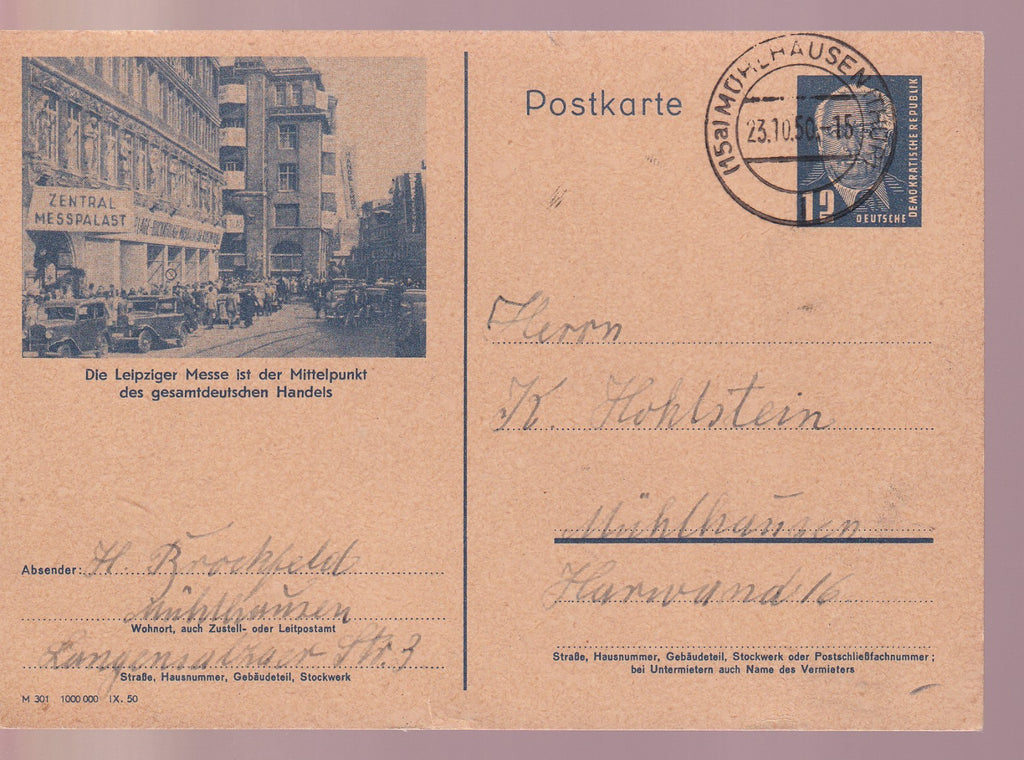 ZENTRAL
MESSPALAST
Die Leipziger Messe ist der Mittelpunkt
des gesamtdeutschen Handels
Absender: H. Brockfeld
Mühlhausen
Wohnort, auch Zustell- oder Leitpostamt
Langensalzaer Str. 3
Straße, Hausnummer, Gebäudeteil, Stockwerk
M 301 1000 000 IX. 50
Postkarte
(15a) MÜHLHAUSEN (THÜR)
23.10.50.-15
12
DEUTSCHE
DEMOKRATISCHE REPUBLIK
Herrn
K. Hohlstein
Mühlhausen
Harwand 16
Straße, Hausnummer, Gebäudeteil, Stockwerk oder Postschließfachnummer;
bei Untermietern auch Name des Vermieters